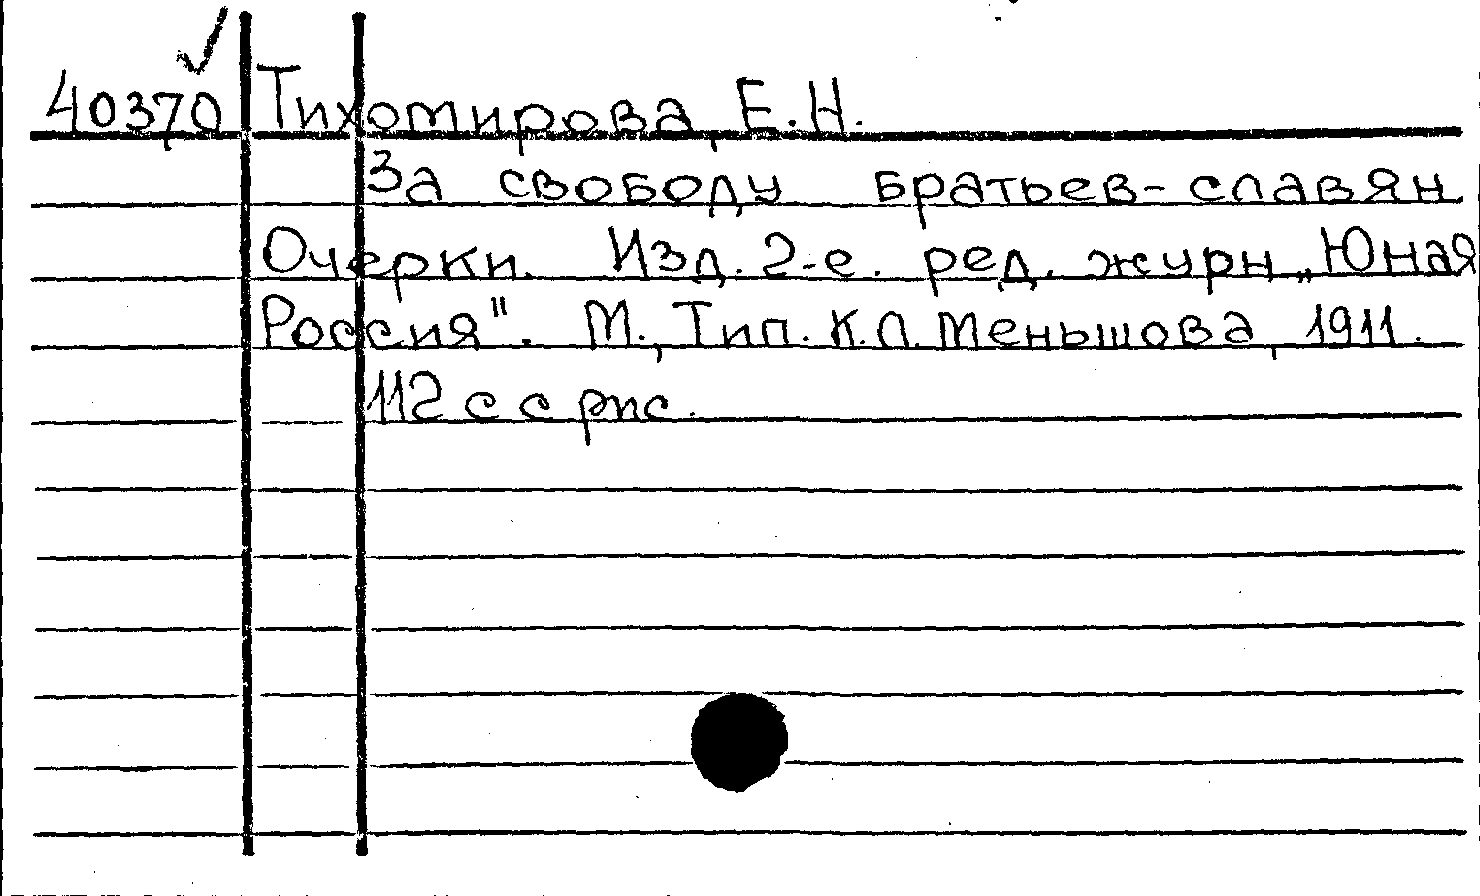 40370 Тихомирова, Е.Н.
За свободу братьев-славян
Очерки. Изд. 2-е. ред. журн „Юная
Россия". М., Тип. К.Л. Меньшова, 1911.
112 с с рис.